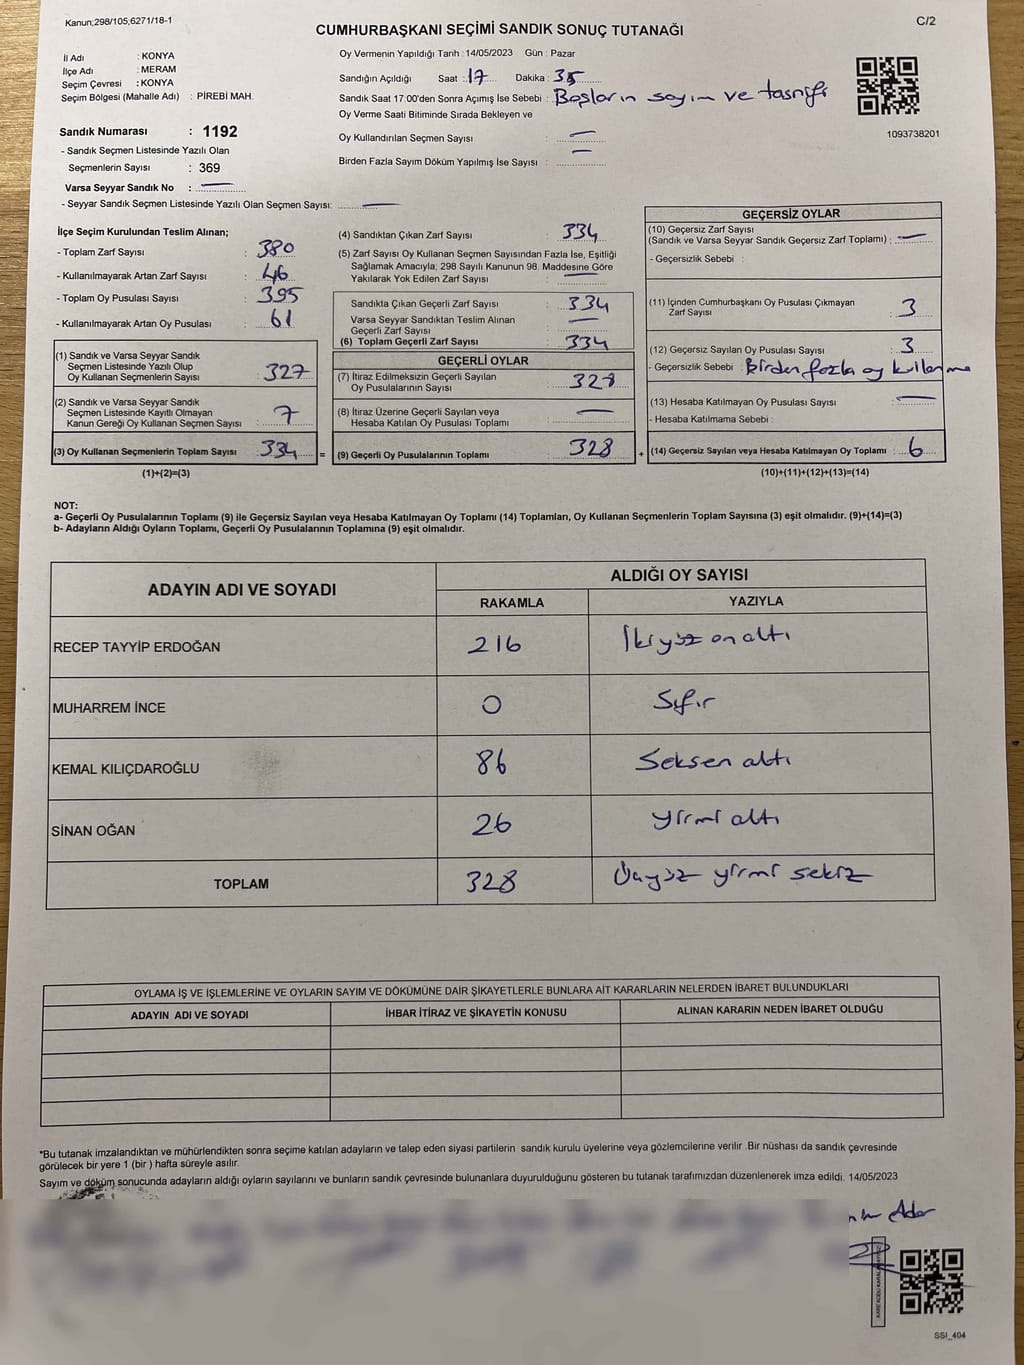 Kanun;298/105,6271/18-1
C/2
CUMHURBAŞKANI SEÇİMİ SANDIK SONUÇ TUTANAĞI
İl Adı : KONYA
İlçe Adı : MERAM
Seçim Çevresi : KONYA
Seçim Bölgesi (Mahalle Adı) : PİREBİ MAH.
Oy Vermenin Yapıldığı Tarih : 14/05/2023 Gün : Pazar
Sandığın Açıldığı Saat : 17 Dakika : 35
Sandık Saat 17:00'den Sonra Açımış İse Sebebi : Boşların sayım ve tasnifi
Oy Verme Saati Bitiminde Sırada Bekleyen ve
Oy Kullandırılan Seçmen Sayısı : —
Birden Fazla Sayım Döküm Yapılmış İse Sayısı : —
1093738201
Sandık Numarası : 1192
- Sandık Seçmen Listesinde Yazılı Olan
Seçmenlerin Sayısı : 369
Varsa Seyyar Sandık No : —
- Seyyar Sandık Seçmen Listesinde Yazılı Olan Seçmen Sayısı: —
İlçe Seçim Kurulundan Teslim Alınan;
- Toplam Zarf Sayısı : 380
- Kullanılmayarak Artan Zarf Sayısı : 46
- Toplam Oy Pusulası Sayısı : 395
- Kullanılmayarak Artan Oy Pusulası : 61
(1) Sandık ve Varsa Seyyar Sandık
Seçmen Listesinde Yazılı Olup
Oy Kullanan Seçmenlerin Sayısı : 327
(2) Sandık ve Varsa Seyyar Sandık
Seçmen Listesinde Kayıtlı Olmayan
Kanun Gereği Oy Kullanan Seçmen Sayısı : 7
(3) Oy Kullanan Seçmenlerin Toplam Sayısı : 334 =
(1)+(2)=(3)
(4) Sandıktan Çıkan Zarf Sayısı : 334
(5) Zarf Sayısı Oy Kullanan Seçmen Sayısından Fazla İse, Eşitliği
Sağlamak Amacıyla; 298 Sayılı Kanunun 98. Maddesine Göre
Yakılarak Yok Edilen Zarf Sayısı : —
Sandıkta Çıkan Geçerli Zarf Sayısı : 334
Varsa Seyyar Sandıktan Teslim Alınan
Geçerli Zarf Sayısı : —
(6) Toplam Geçerli Zarf Sayısı : 334
GEÇERLİ OYLAR
(7) İtiraz Edilmeksizin Geçerli Sayılan
Oy Pusulalarının Sayısı : 328
(8) İtiraz Üzerine Geçerli Sayılan veya
Hesaba Katılan Oy Pusulası Toplamı : —
(9) Geçerli Oy Pusulalarının Toplamı : 328 +
GEÇERSİZ OYLAR
(10) Geçersiz Zarf Sayısı
(Sandık ve Varsa Seyyar Sandık Geçersiz Zarf Toplamı) : —
- Geçersizlik Sebebi :
(11) İçinden Cumhurbaşkanı Oy Pusulası Çıkmayan
Zarf Sayısı : 3
(12) Geçersiz Sayılan Oy Pusulası Sayısı : 3
- Geçersizlik Sebebi : Birden fazla oy kullanma
(13) Hesaba Katılmayan Oy Pusulası Sayısı : —
- Hesaba Katılmama Sebebi :
(14) Geçersiz Sayılan veya Hesaba Katılmayan Oy Toplamı : 6
(10)+(11)+(12)+(13)=(14)
NOT:
a- Geçerli Oy Pusulalarının Toplamı (9) ile Geçersiz Sayılan veya Hesaba Katılmayan Oy Toplamı (14) Toplamları, Oy Kullanan Seçmenlerin Toplam Sayısına (3) eşit olmalıdır. (9)+(14)=(3)
b- Adayların Aldığı Oyların Toplamı, Geçerli Oy Pusulalarının Toplamına (9) eşit olmalıdır.
ADAYIN ADI VE SOYADI ALDIĞI OY SAYISI
RAKAMLA YAZIYLA
RECEP TAYYİP ERDOĞAN 216 İkiyüz on altı
MUHARREM İNCE 0 Sıfır
KEMAL KILIÇDAROĞLU 86 Seksen altı
SİNAN OĞAN 26 yirmi altı
TOPLAM 328 Üçyüz yirmi sekiz
OYLAMA İŞ VE İŞLEMLERİNE VE OYLARIN SAYIM VE DÖKÜMÜNE DAİR ŞİKAYETLERLE BUNLARA AİT KARARLARIN NELERDEN İBARET BULUNDUKLARI
ADAYIN ADI VE SOYADI İHBAR İTİRAZ VE ŞİKAYETİN KONUSU ALINAN KARARIN NEDEN İBARET OLDUĞU
*Bu tutanak imzalandıktan ve mühürlendikten sonra seçime katılan adayların ve talep eden siyasi partilerin sandık kurulu üyelerine veya gözlemcilerine verilir .Bir nüshası da sandık çevresinde
görülecek bir yere 1 (bir ) hafta süreyle asılır.
Sayım ve döküm sonucunda adayların aldığı oyların sayılarını ve bunların sandık çevresinde bulunanlara duyurulduğunu gösteren bu tutanak tarafımızdan düzenlenerek imza edildi. 14/05/2023
SSI_404